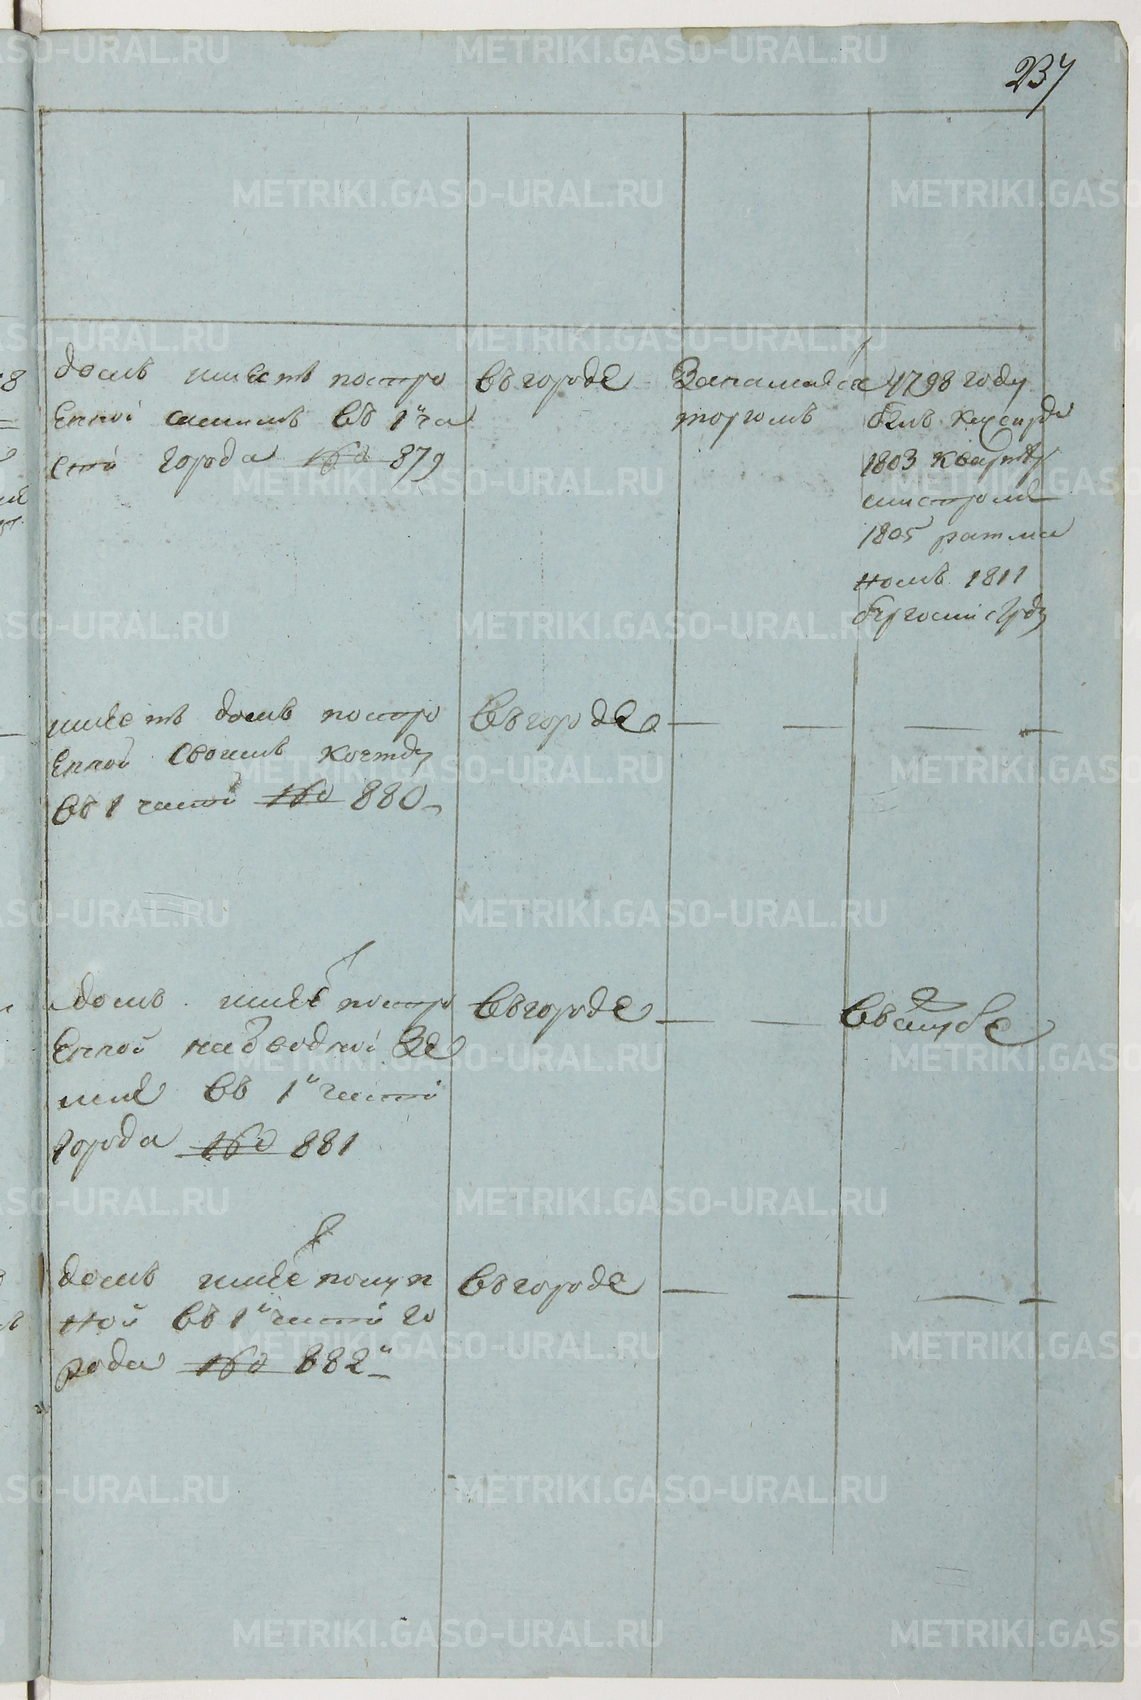 237
домъ имѣетъ постро
енной самимъ въ 1й ча
сти города под 879
въ городѣ
Занимаѣтса
торгомъ
1798 году
былъ
1803 кварта
1805 ратма
номъ 1811
имѣетъ домъ постро
енной своимъ коштом
въ 1 части под 880
въ городѣ
домъ имѣет постро
енной на отводной зе
млѣ въ 1й части
города под 881
въ городѣ
домъ имѣет покуп
ной въ 1й части го
рода под 882й
въ городѣ
METRIKI.GASO-URAL.RU